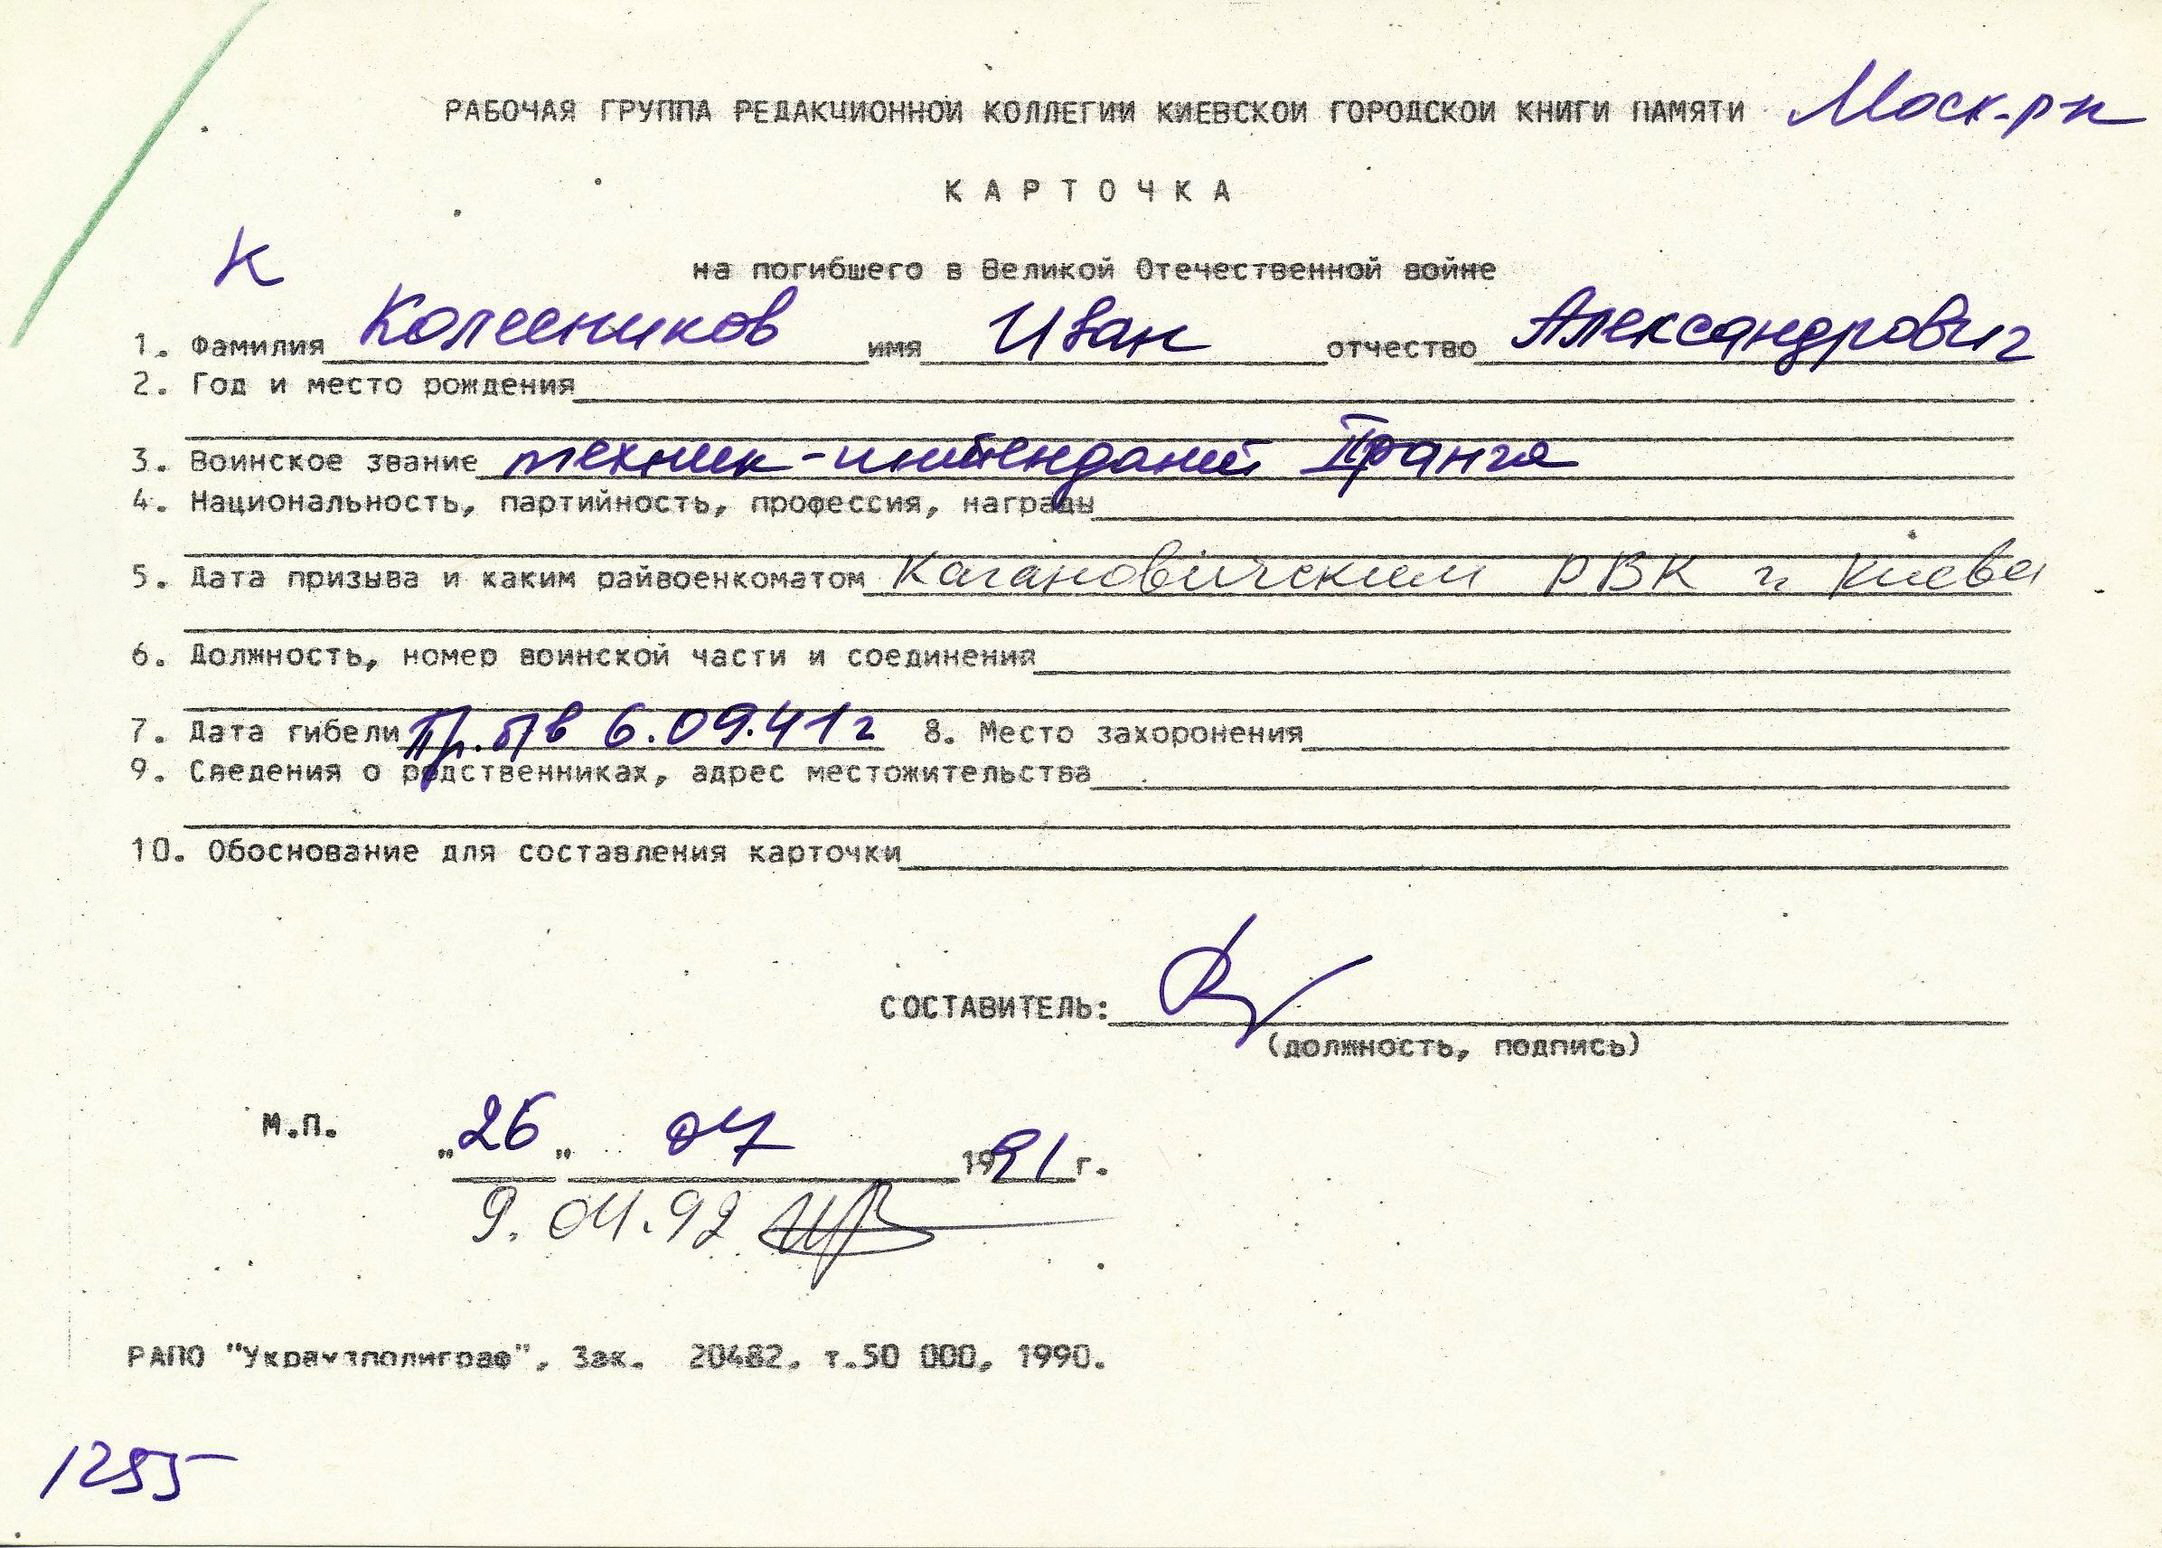 РАБОЧАЯ ГРУППА РЕДАКЦИОННОЙ КОЛЛЕГИИ КИЕВСКОЙ ГОРОДСКОЙ КНИГИ ПАМЯТИ Моск-рн
КАРТОЧКА
К
на погибшего в Великой Отечественной войне
1. Фамилия Колесников имя Иван отчество Александрович
2. Год и место рождения
3. Воинское звание техник-интендант II ранга
4. Национальность, партийность, профессия, награды
5. Дата призыва и каким райвоенкоматом Кагановическим РВК г. Киева
6. Должность, номер воинской части и соединения
7. Дата гибели Пр. б/в 6.09.41г 8. Место захоронения
9. Сведения о родственниках, адрес местожительства
10. Обоснование для составления карточки
СОСТАВИТЕЛЬ:
(должность, подпись)
М.П. „26„ 07 1991 г.
9.04.92
РАПО "Укрвузполиграф", Зак. 20482, т.50 000, 1990.
1255